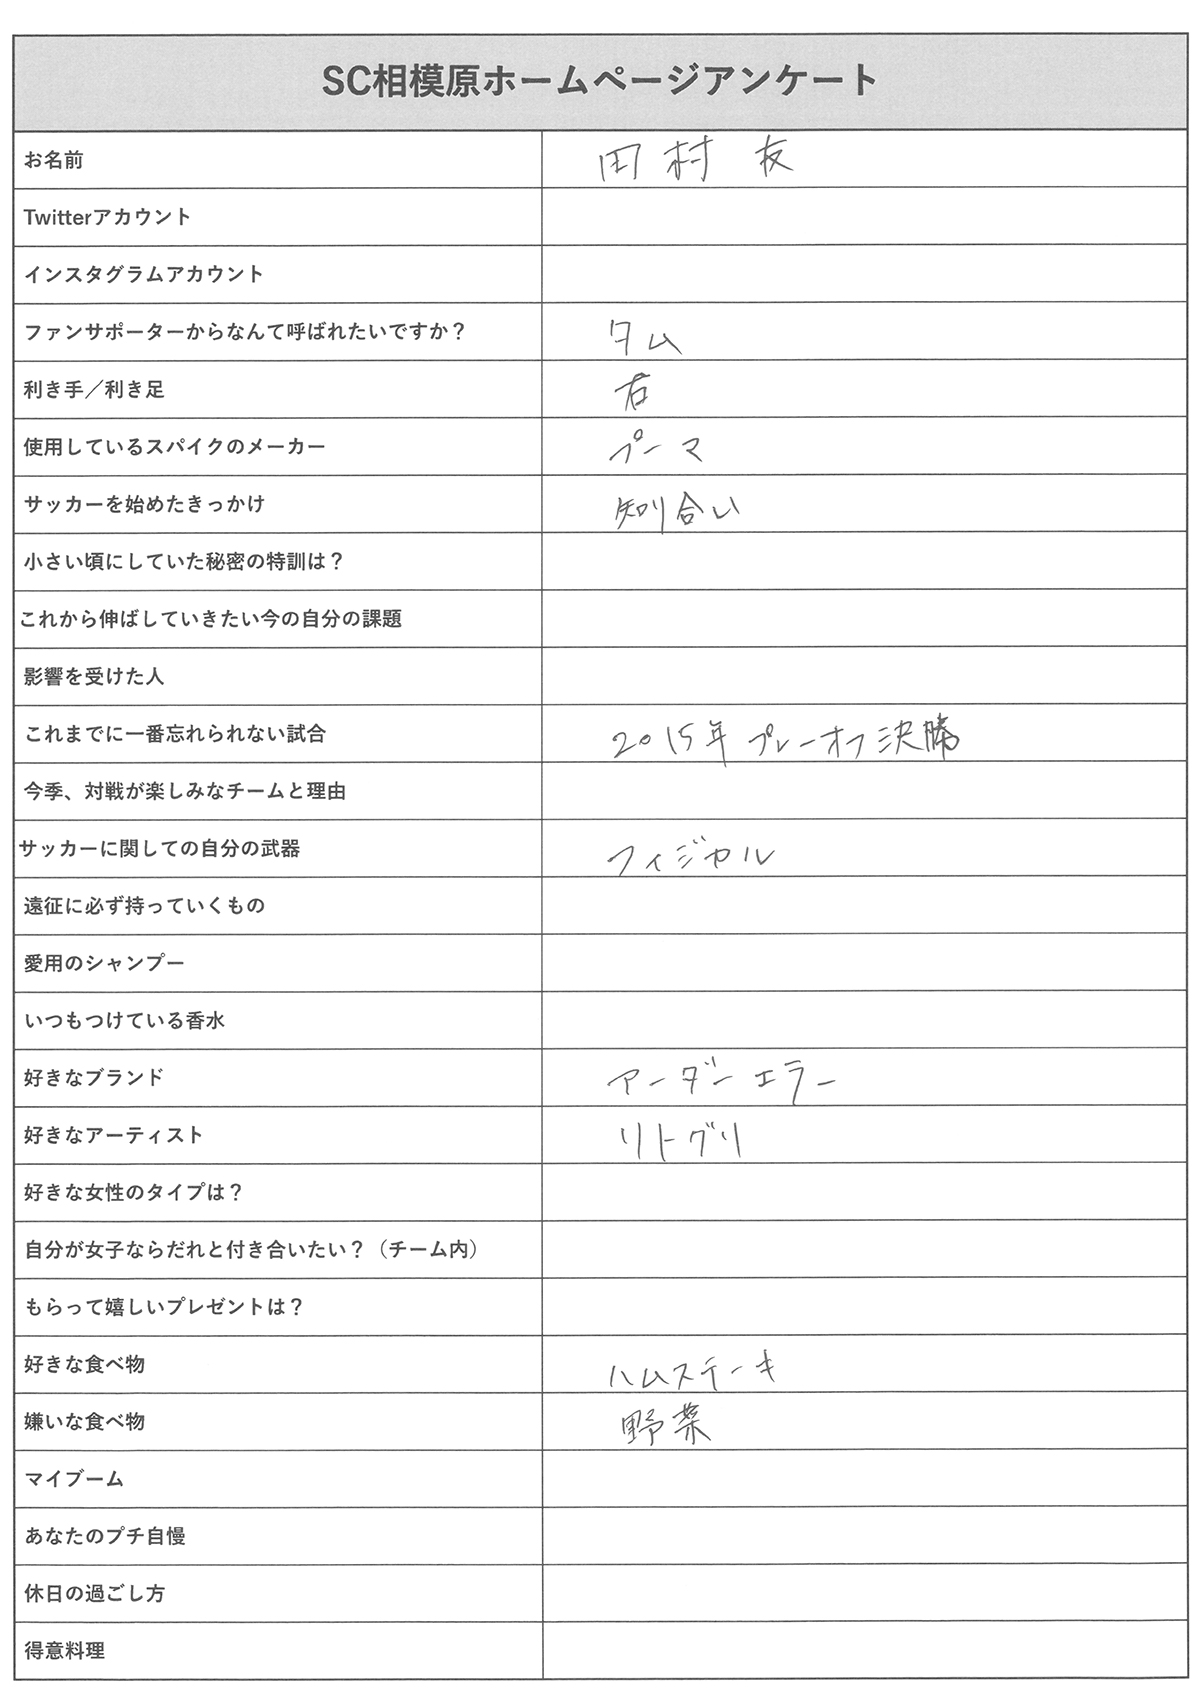 SC相模原ホームページアンケート
お名前 田村 友
Twitterアカウント
インスタグラムアカウント
ファンサポーターからなんて呼ばれたいですか？ タム
利き手／利き足 右
使用しているスパイクのメーカー プーマ
サッカーを始めたきっかけ 知り合い
小さい頃にしていた秘密の特訓は？
これから伸ばしていきたい今の自分の課題
影響を受けた人
これまでに一番忘れられない試合 2015年 プレーオフ決勝
今季、対戦が楽しみなチームと理由
サッカーに関しての自分の武器 フィジカル
遠征に必ず持っていくもの
愛用のシャンプー
いつもつけている香水
好きなブランド アーダーエラー
好きなアーティスト リトグリ
好きな女性のタイプは？
自分が女子ならだれと付き合いたい？（チーム内）
もらって嬉しいプレゼントは？
好きな食べ物 ハムステーキ
嫌いな食べ物 野菜
マイブーム
あなたのプチ自慢
休日の過ごし方
得意料理